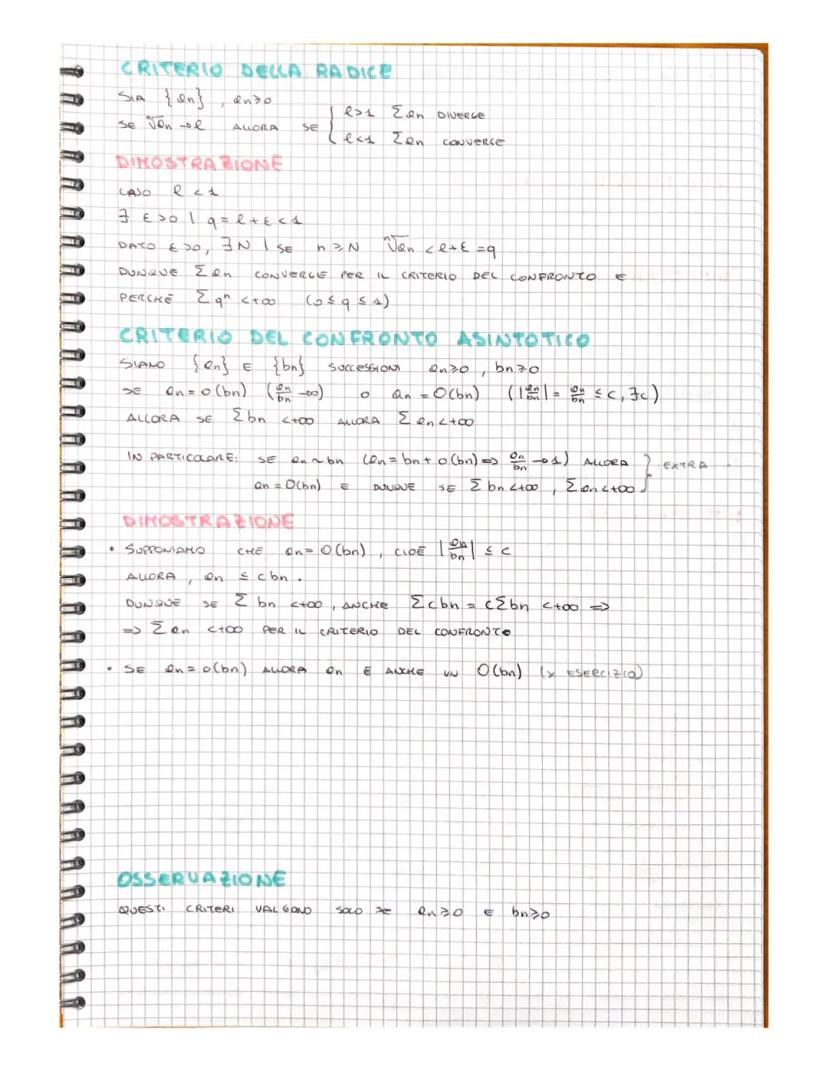 CRITERIO DELLA RADICE
SIA {an}, an≥0
SE ⁿ√an → l ALLORA SE { l>1 Σan DIVERGE
l<1 Σan CONVERGE
DIMOSTRAZIONE
CASO l<1
∃ ε>0 | q = l+ε <1
DATO ε>0, ∃N | SE n≥N ⁿ√an < l+ε = q
DUNQUE Σan CONVERGE PER IL CRITERIO DEL CONFRONTO E
PERCHÉ Σqⁿ <+∞ (0≤q≤1)
CRITERIO DEL CONFRONTO ASINTOTICO
SIANO {an} E {bn} SUCCESSIONI an≥0, bn≥0
SE an = o(bn) (an/bn →0) O an = O(bn) (|an/bn| = an/bn ≤ c, ∃c)
ALLORA SE Σbn <+∞ ALLORA Σan <+∞
IN PARTICOLARE: SE an ~ bn (an = bn + o(bn) => an/bn →1) ALLORA } EXTRA
an = O(bn) E DUNQUE SE Σbn <+∞, Σan <+∞
DIMOSTRAZIONE
• SUPPONIAMO CHE an = O(bn), CIOÈ |an/bn| ≤ c
ALLORA, an ≤ cbn.
DUNQUE SE Σbn <+∞, ANCHE Σcbn = cΣbn <+∞ =>
=> Σan <+∞ PER IL CRITERIO DEL CONFRONTO
• SE an = o(bn) ALLORA an È ANCHE UN O(bn) (x ESERCIZIO)
OSSERVAZIONE
QUESTI CRITERI VALGONO SOLO SE an≥0 E bn≥0